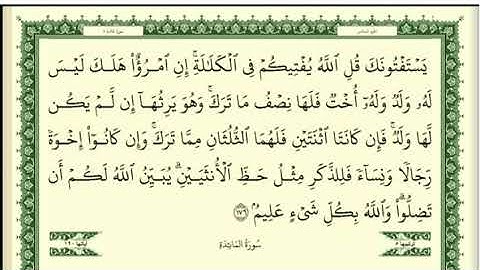 يَسْتَفْتُونَكَ قُلِ ٱللَّهُ يُفْتِيكُمْ فِى ٱلْكَلَٰلَةِ ۚ إِنِ ٱمْرُؤٌا۟ هَلَكَ لَيْسَ
لَهُۥ وَلَدٌ وَلَهُۥٓ أُخْتٌ فَلَهَا نِصْفُ مَا تَرَكَ ۚ وَهُوَ يَرِثُهَآ إِن لَّمْ يَكُن
لَّهَا وَلَدٌ ۚ فَإِن كَانَتَا ٱثْنَتَيْنِ فَلَهُمَا ٱلثُّلُثَانِ مِمَّا تَرَكَ ۚ وَإِن كَانُوٓا۟ إِخْوَةً
رِّجَالًا وَنِسَآءً فَلِلذَّكَرِ مِثْلُ حَظِّ ٱلْأُنثَيَيْنِ ۗ يُبَيِّنُ ٱللَّهُ لَكُمْ أَن
تَضِلُّوا۟ ۗ وَٱللَّهُ بِكُلِّ شَىْءٍ عَلِيمٌۢ ١٧٦
سُورَةُ المَائِدَةِ